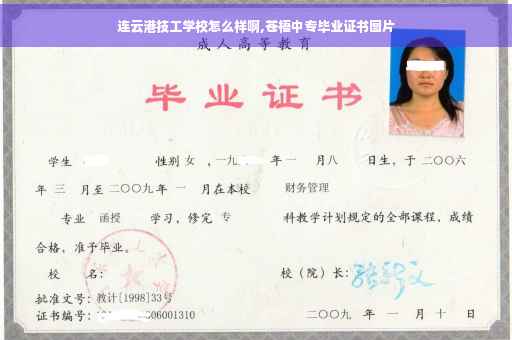 连云港技工学校怎么样啊,苍梧中专毕业证书图片
成人高等教育
毕业证书
学生 性别 女 ,一九 年 一 月八 日生，于 二〇〇六
年 三 月至 二〇〇九 年 一 月在本校 财务管理
专业 函授 学习，修完 专 科教学计划规定的全部课程，成绩
合格，准予毕业。
校 名： 校（院）长：
批准文号：教计[1998]33号
证书编号： 06001310 二〇〇九 年 一 月 十 日